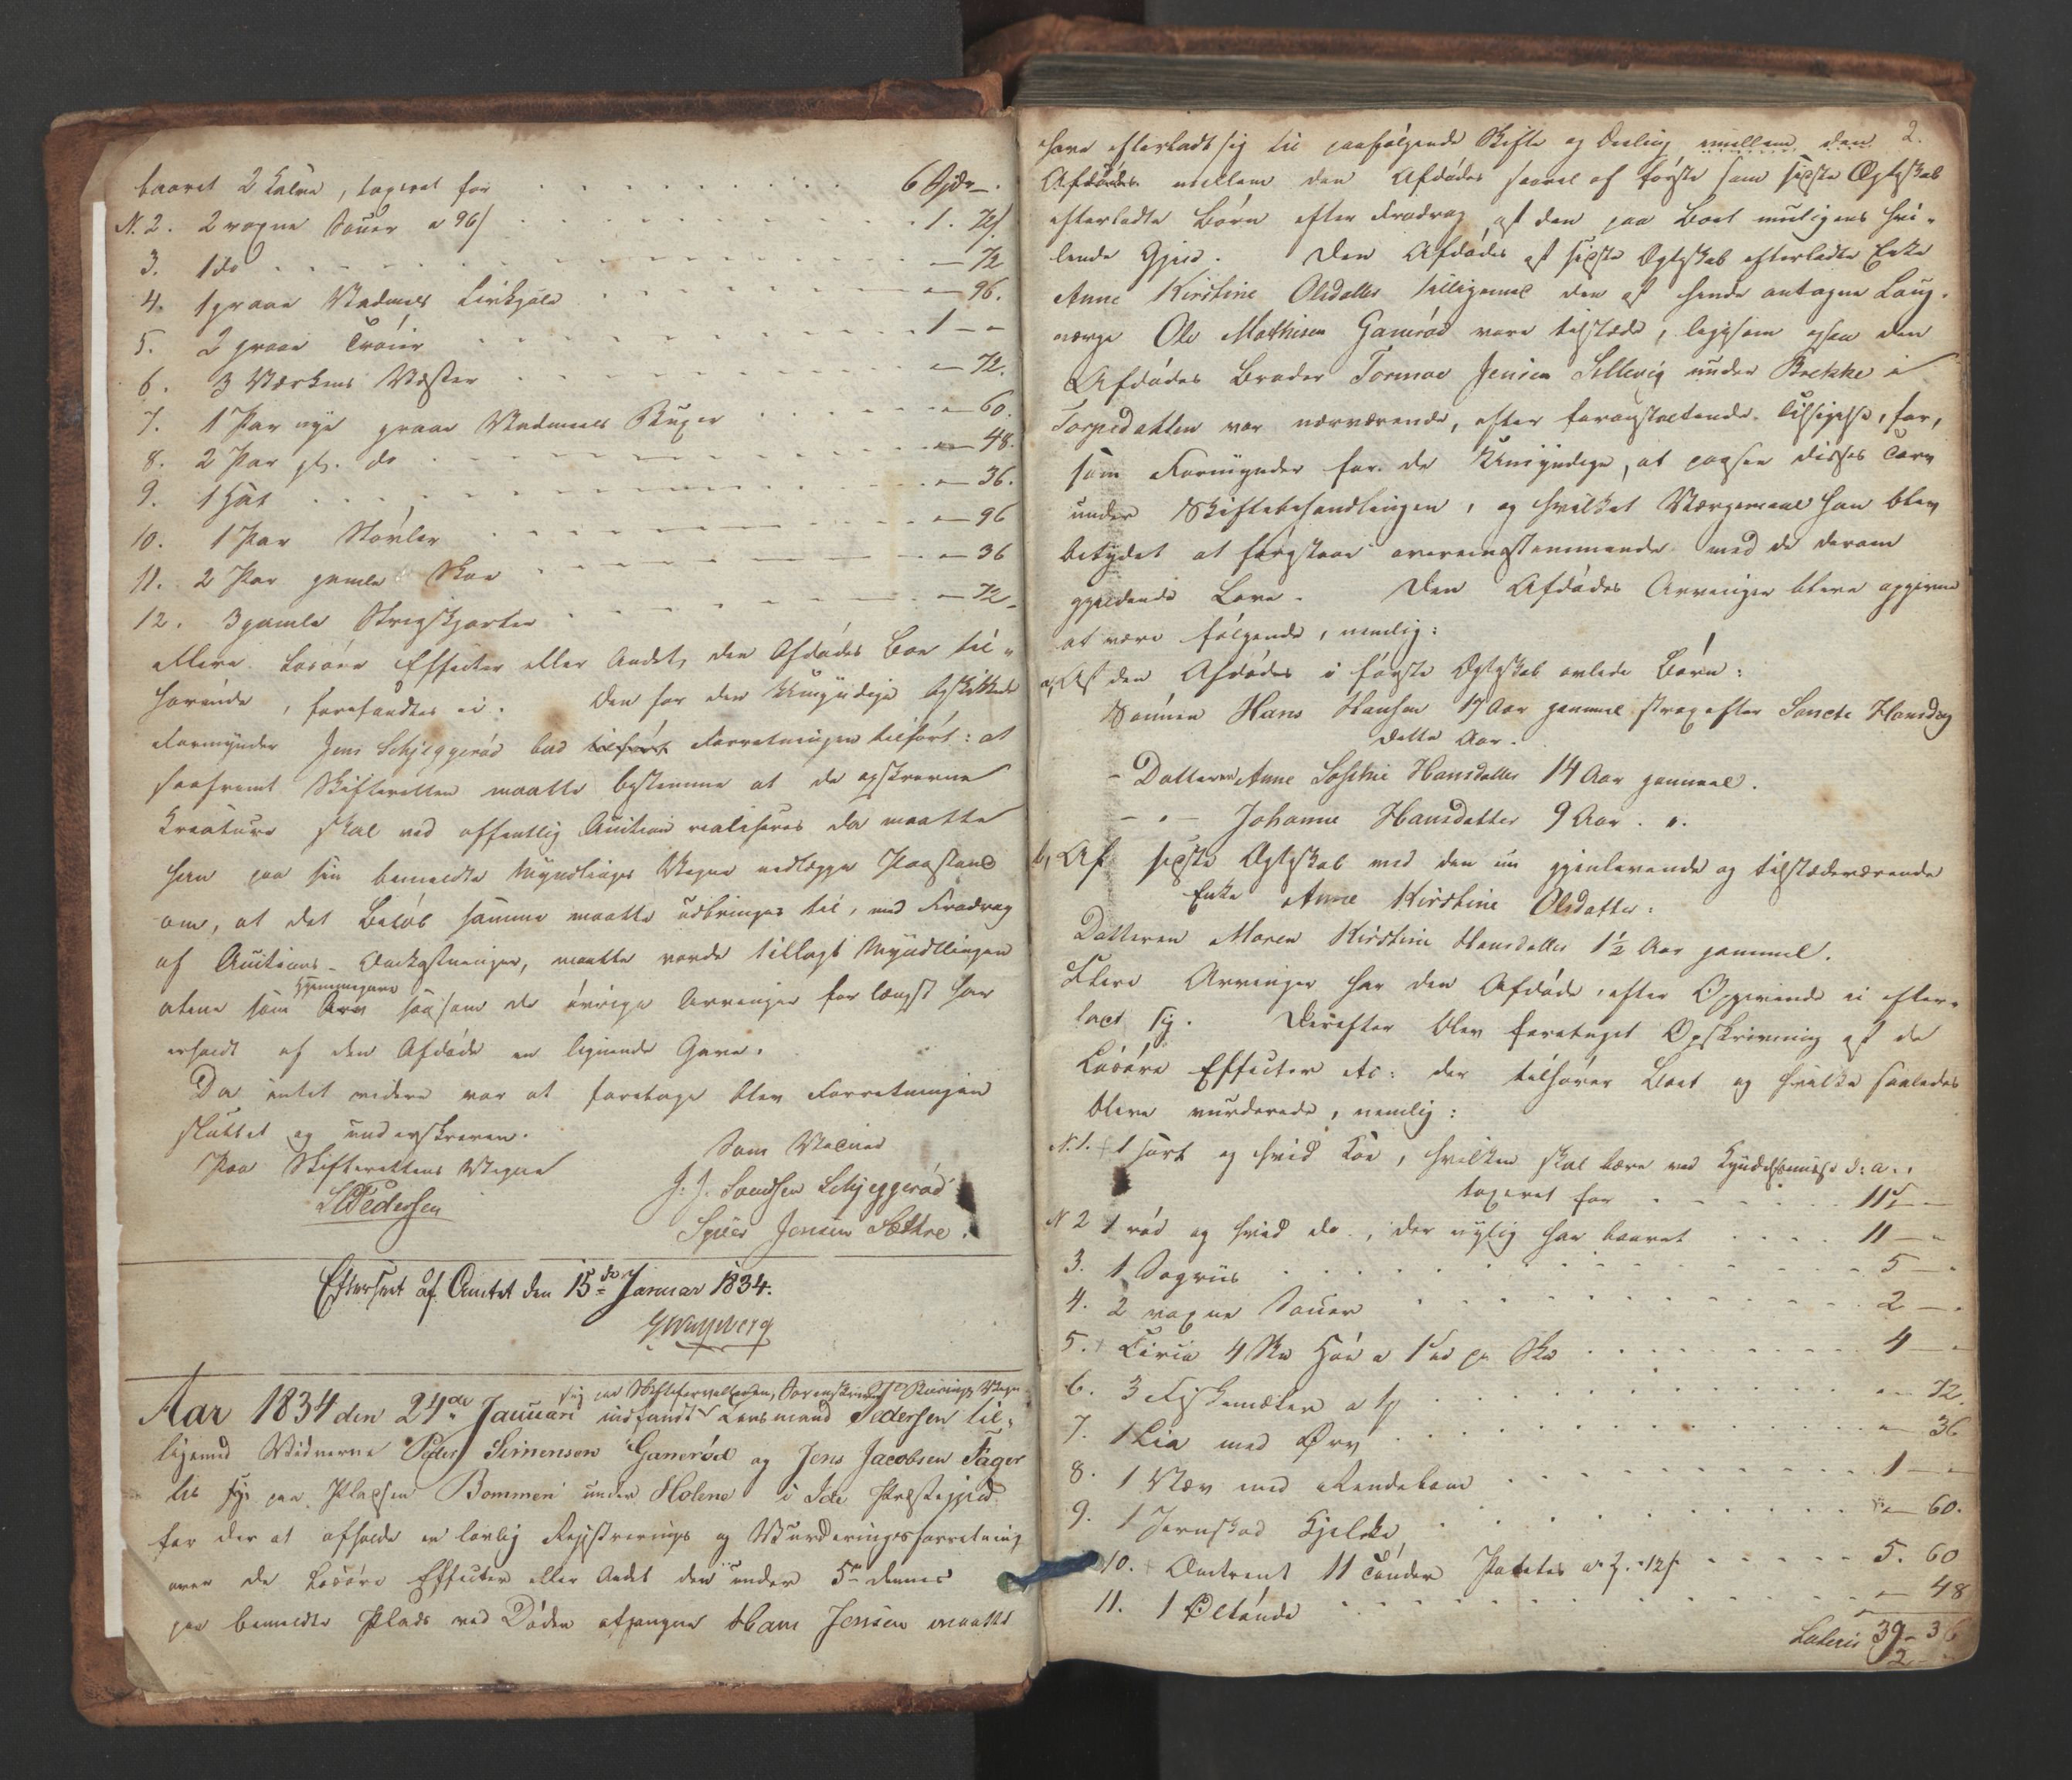 baaret 2 Kalve, taxeret for . . . 6 Spdr —.
N. 2. 2 voxne Sauer a 96/ . . . 1. 72/.
3. 1 do . . . — 72
4. 1 graae Vadmels Livkjole . . . — 96.
5. 2 graae Trøier . . . 1 — —
6. 3 Værkens Væster . . . — 72.
7. 1 Par nye graae Vadmels Buxer . . . — 60.
8. 2 Par gl. do . . . — 48.
9. 1 Hat . . . — 36.
10. 1 Par Støvler . . . — 96
11. 2 Par gamle Skoe . . . — 36
12. 3 gamle Strigskjorter . . . — 72 —
Flere Løsøre Effecter eller Andet, den Afdødes Boe til-
hørende, forefandtes ei. Den for den Umyndige beskikkede
Formynder Jens Schjeggerød bad tilført Forretningen tilført: at
saafremt Skifteretten maatte bestemme at de opskrevne
Kreature skal ved offentlig Auction realiseres da maatte
han paa sin bemeldte Myndlings Vegne nedlægge Paastand
om, at det Beløb samme maatte udbringes til, med Fradrag
af Auctions-Omkostninger, maatte vorde tillagt Myndlingen
alene som Hjemmegave Arv saasom de øvrige Arvinger for længst har
erholdt af den Afdøde en lignende Gave.
Da intet videre var at foretage blev Forretningen
sluttet og underskreven.
Paa Skifterettens Vegne
Pedersen
Som Vidner
J. J. Schjeggerød
Jensen Sæthre.
Efterseet af Amtet den 15de Januar 1834.
Aar 1834 den 24de Januari indfandt sig paa Skifteforvalteren, Sorenskriver Vegne Lensmand Pedersen til-
ligemed Vidnerne Peder Simensen Ganerød og Jens Jacobsen Fager
lie sig paa Pladsen Bommen under Holene i Ide Præstegjeld
for der at afholde en lovlig Registrerings og Vurderingsforretning
over de Løsøre Effecter eller Andet den under 5te dennes
paa bemeldte Plads ved Døden afgangne Hans Jensen maatte
2.
have efterladt sig til paafølgende Skifte og Deeling imellem den
Afdødes mellem den Afdødes saavel af første som sidste Ægteskab
efterladte Børn efter Fradrag af den paa Boet muligens hvi-
lende Gjeld. Den Afdødes af sidste Ægteskab efterladte Enke
Anne Kirstine Olsdatter tilligemed den af hende antagne Laug-
værge Ole Mathisen Ganerød vare tilstæde, ligesom ogsaa den
Afdødes Broder Tormod Jensen Sillevig under Brekke i
Torpedalen var nærværende, efter foranstaltende Tilsigelse, for,
som Formynder for de Umyndige, at paasee disses Tarv
under Skiftebehandlingen, og hvilket Værgemaal han blev
betydet at forestaae overeensstemmende med de derom
gjeldende Love. Den Afdødes Arvinger bleve opgivne
at være følgende, nemlig:
a, Af den Afdødes i første Ægteskab avlede Børn:
Sønnen Hans Hansen 17 Aar gammel strax efter Sancte Hansdag
dette Aar.
- Datteren Anne Sophie Hansdatter 14 Aar gammel.
- " - Johanne Hansdatter 9 Aar. ".
b, Af sidste Ægteskab med den nu gjenlevende og tilstædeværende
Enke Anne Kirstine Olsdatter:
Datteren Maren Kirstine Hansdatter 1½ Aar gammel.
Flere Arvinger har den Afdøde, efter Opgivende ei efter-
ladt sig. Derefter blev foretaget Opskrivning af de
Løsøre Effecter etc: der tilhører Boet og hvilke saaledes
bleve vurderede, nemlig:
N. 1. 1 sort og hvid Koe, hvilken skal bære ved Kyndelsmisse d: a:,
taxeret for . . . 11 — —
N 2 1 rød og hvid do., der nylig har baaret . . . 11 — -
3. 1 Sogriis . . . 5 — -
4. 2 voxne Sauer . . . 2 — -
5. Circa 4 Høe a 1 . . . 4 — -
6. 3 . . . — 72.
7. 1 Lia med Orv . . . — 36
8. 1 Væv med Rendebom . . . 1 — -
9. 1 Jernskoed Kjelke . . . — 60.
10. Omtrent 11 Tønder Potetes a . 12/ . . . 5. 60
11. 1 Øltønde . . . — 48
Lateris 39 - 36